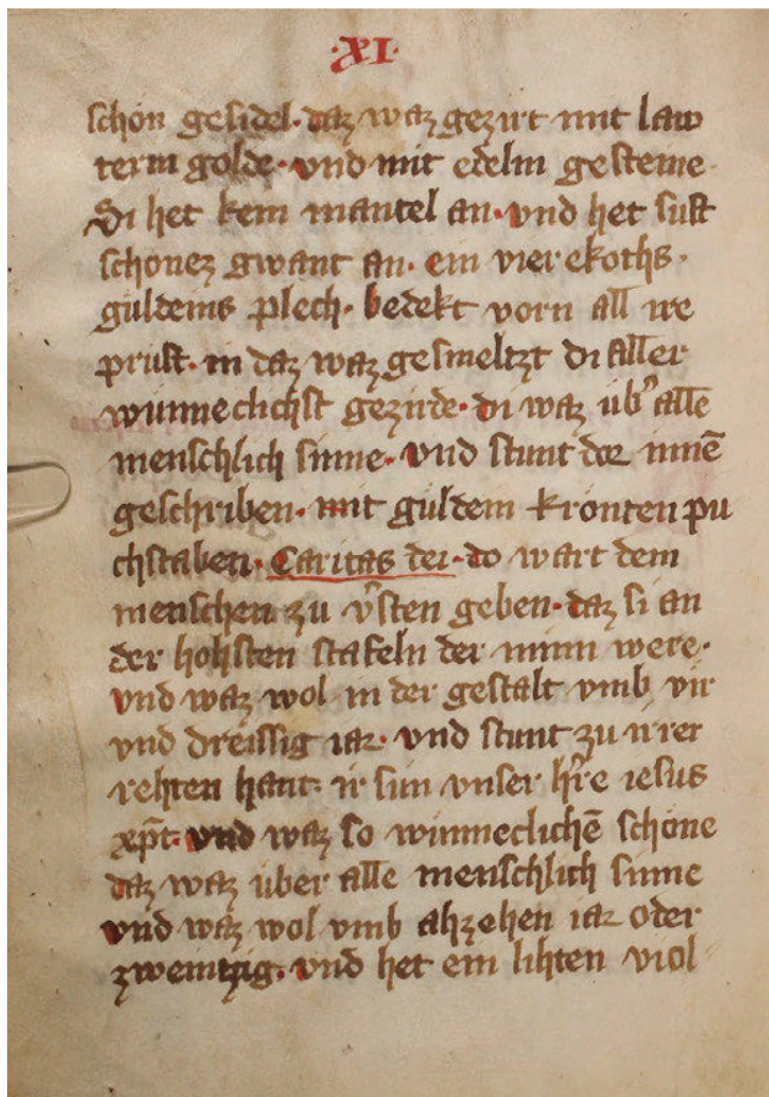 ·XI·
schon gesidel· daz waz gezirt mit law
term golde· vnd mit edelm gesteine·
Di het kein mantel an· vnd het sust
schonez gwant an· ein vier ekoths·
guldeins plech· bedekt vorn all ire
prust· in daz waz gesmeltzt di aller
wunneclichst gezirde· di waz úb᾽ alle
menschlich sinne· vnd stunt dor innē
geschriben· mit guldein kronten pu
chstaben· Caritas dei· do wart dem
menschen zu v᾽sten geben· daz si an
der hohsten stafeln der minn were·
vnd waz wol in der gestalt vmb vir
vnd dreissig iar· vnd stunt zu irer
rehten hant· ir sun vnser h᾽re iesus
xp̄t· vnd waz so winneclichē schöne
daz waz úber alle menschlich sinne
vnd waz wol vmb ahzehen iar oder
zweintzig· vnd het ein lihten viol